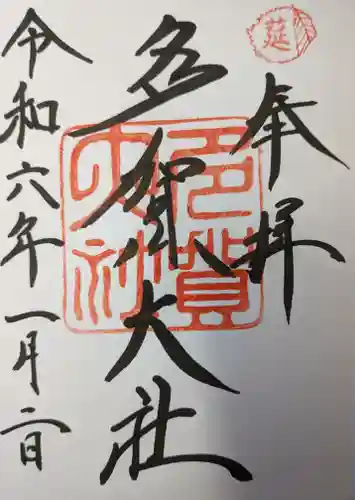 奉拝
莚
多賀大社
多賀大社
令和六年一月二日